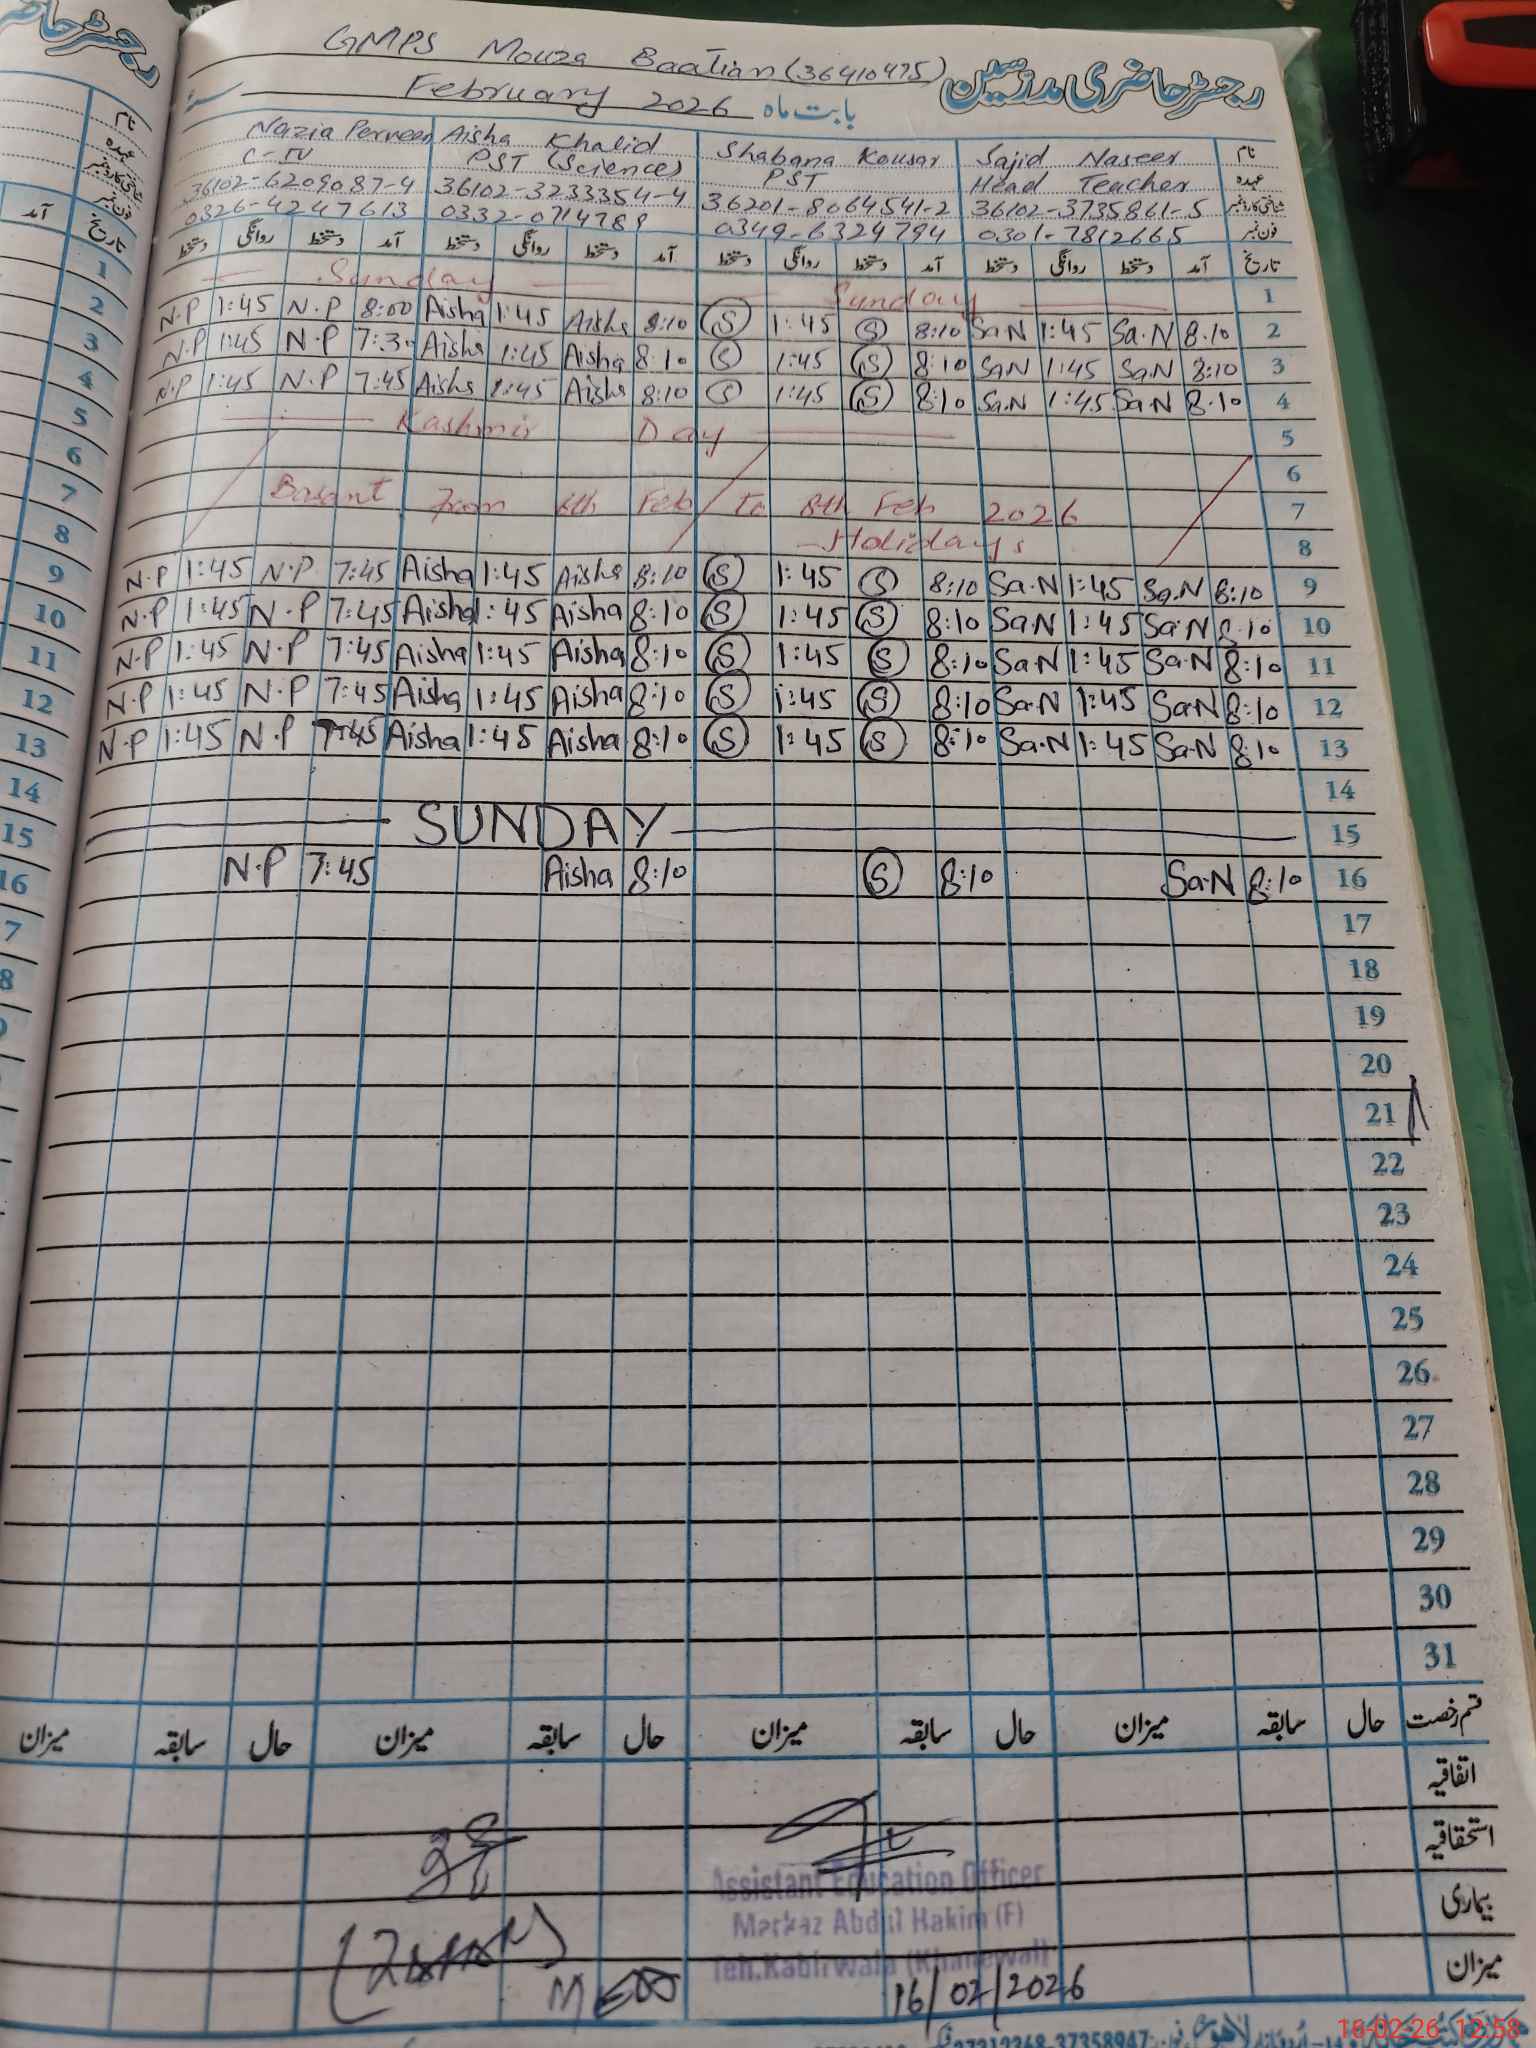 GMPS Mouza Baatian (36410475) رجسٹر حاضری مدرسین
February 2026 بابت ماہ
Nazia Perveen Aisha Khalid Shabana Kousar Sajid Naseer نام
C-IV PST (Science) PST Head Teacher عہدہ
36102-6209087-4 36102-3233354-4 36201-8064541-2 36102-3735861-5 شناختی کارڈ نمبر
0326-4247613 0332-0714789 0349-6324794 0301-7812665 فون نمبر
دستخط روانگی دستخط آمد دستخط روانگی دستخط آمد دستخط روانگی دستخط آمد دستخط روانگی دستخط آمد تاریخ
Sunday Sunday 1
N.P 1:45 N.P 8:00 Aisha 1:45 Aisha 8:10 S 1:45 S 8:10 Sa.N 1:45 Sa.N 8:10 2
N.P 1:45 N.P 7:30 Aisha 1:45 Aisha 8:10 S 1:45 S 8:10 Sa.N 1:45 Sa.N 8:10 3
N.P 1:45 N.P 7:45 Aisha 1:45 Aisha 8:10 S 1:45 S 8:10 Sa.N 1:45 Sa.N 8:10 4
Kashmir Day 5
6
Basant From 6th Feb To 8th Feb 2026 7
Holidays 8
N.P 1:45 N.P 7:45 Aisha 1:45 Aisha 8:10 S 1:45 S 8:10 Sa.N 1:45 Sa.N 8:10 9
N.P 1:45 N.P 7:45 Aisha 1:45 Aisha 8:10 S 1:45 S 8:10 Sa.N 1:45 Sa.N 8:10 10
N.P 1:45 N.P 7:45 Aisha 1:45 Aisha 8:10 S 1:45 S 8:10 Sa.N 1:45 Sa.N 8:10 11
N.P 1:45 N.P 7:45 Aisha 1:45 Aisha 8:10 S 1:45 S 8:10 Sa.N 1:45 Sa.N 8:10 12
N.P 1:45 N.P 7:45 Aisha 1:45 Aisha 8:10 S 1:45 S 8:10 Sa.N 1:45 Sa.N 8:10 13
14
SUNDAY 15
N.P 7:45 Aisha 8:10 S 8:10 Sa.N 8:10 16
17
18
19
20
21
22
23
24
25
26
27
28
29
30
31
میزان سابقہ حال میزان سابقہ حال میزان سابقہ حال میزان سابقہ حال قسم رخصت
اتفاقیہ
استحقاقیہ
بیماری
میزان
Assistant Education Officer
Markaz Abdul Hakim (F)
Teh.Kabirwala (Khanewal)
16/02/2026
37312368-37358947
16-02-26 12:58